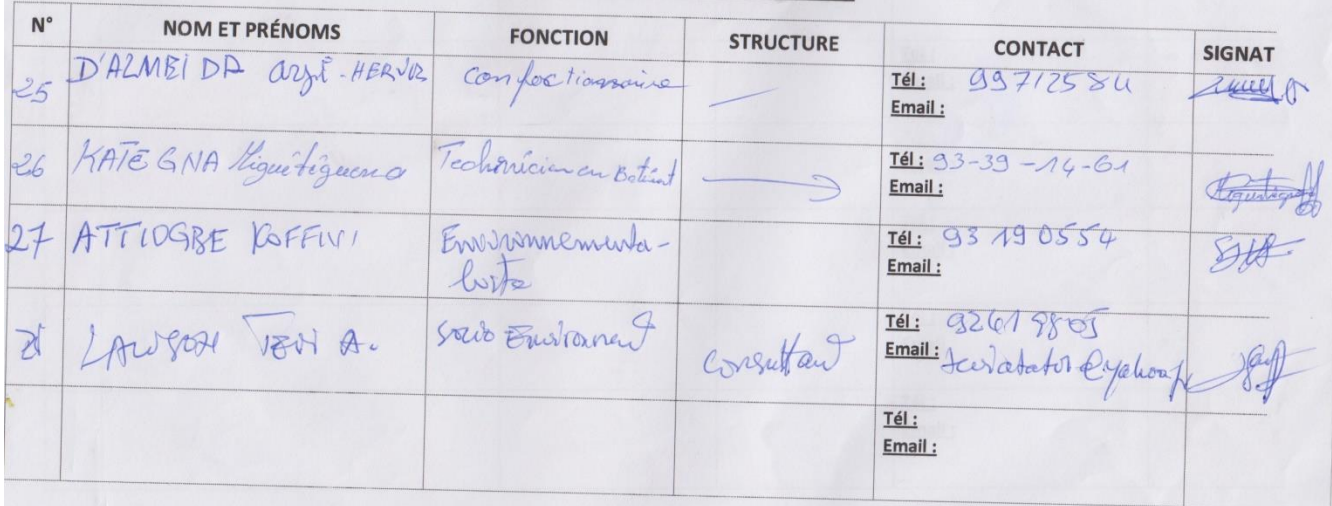 N° NOM ET PRÉNOMS FONCTION STRUCTURE CONTACT SIGNAT
25 D'ALMEIDA -HERVE Confectionnaire Tél : 99712584
Email :
26 KATEGNA Technicien en Batiment Tél : 93-39-14-61
Email :
27 ATTIOGBE KOFFIVI Environnementa- Tél : 93 19 05 54
liste Email :
LAWSON TEVI A. Socio Environnement Consultant Tél : 92619805
Email :
Tél :
Email :